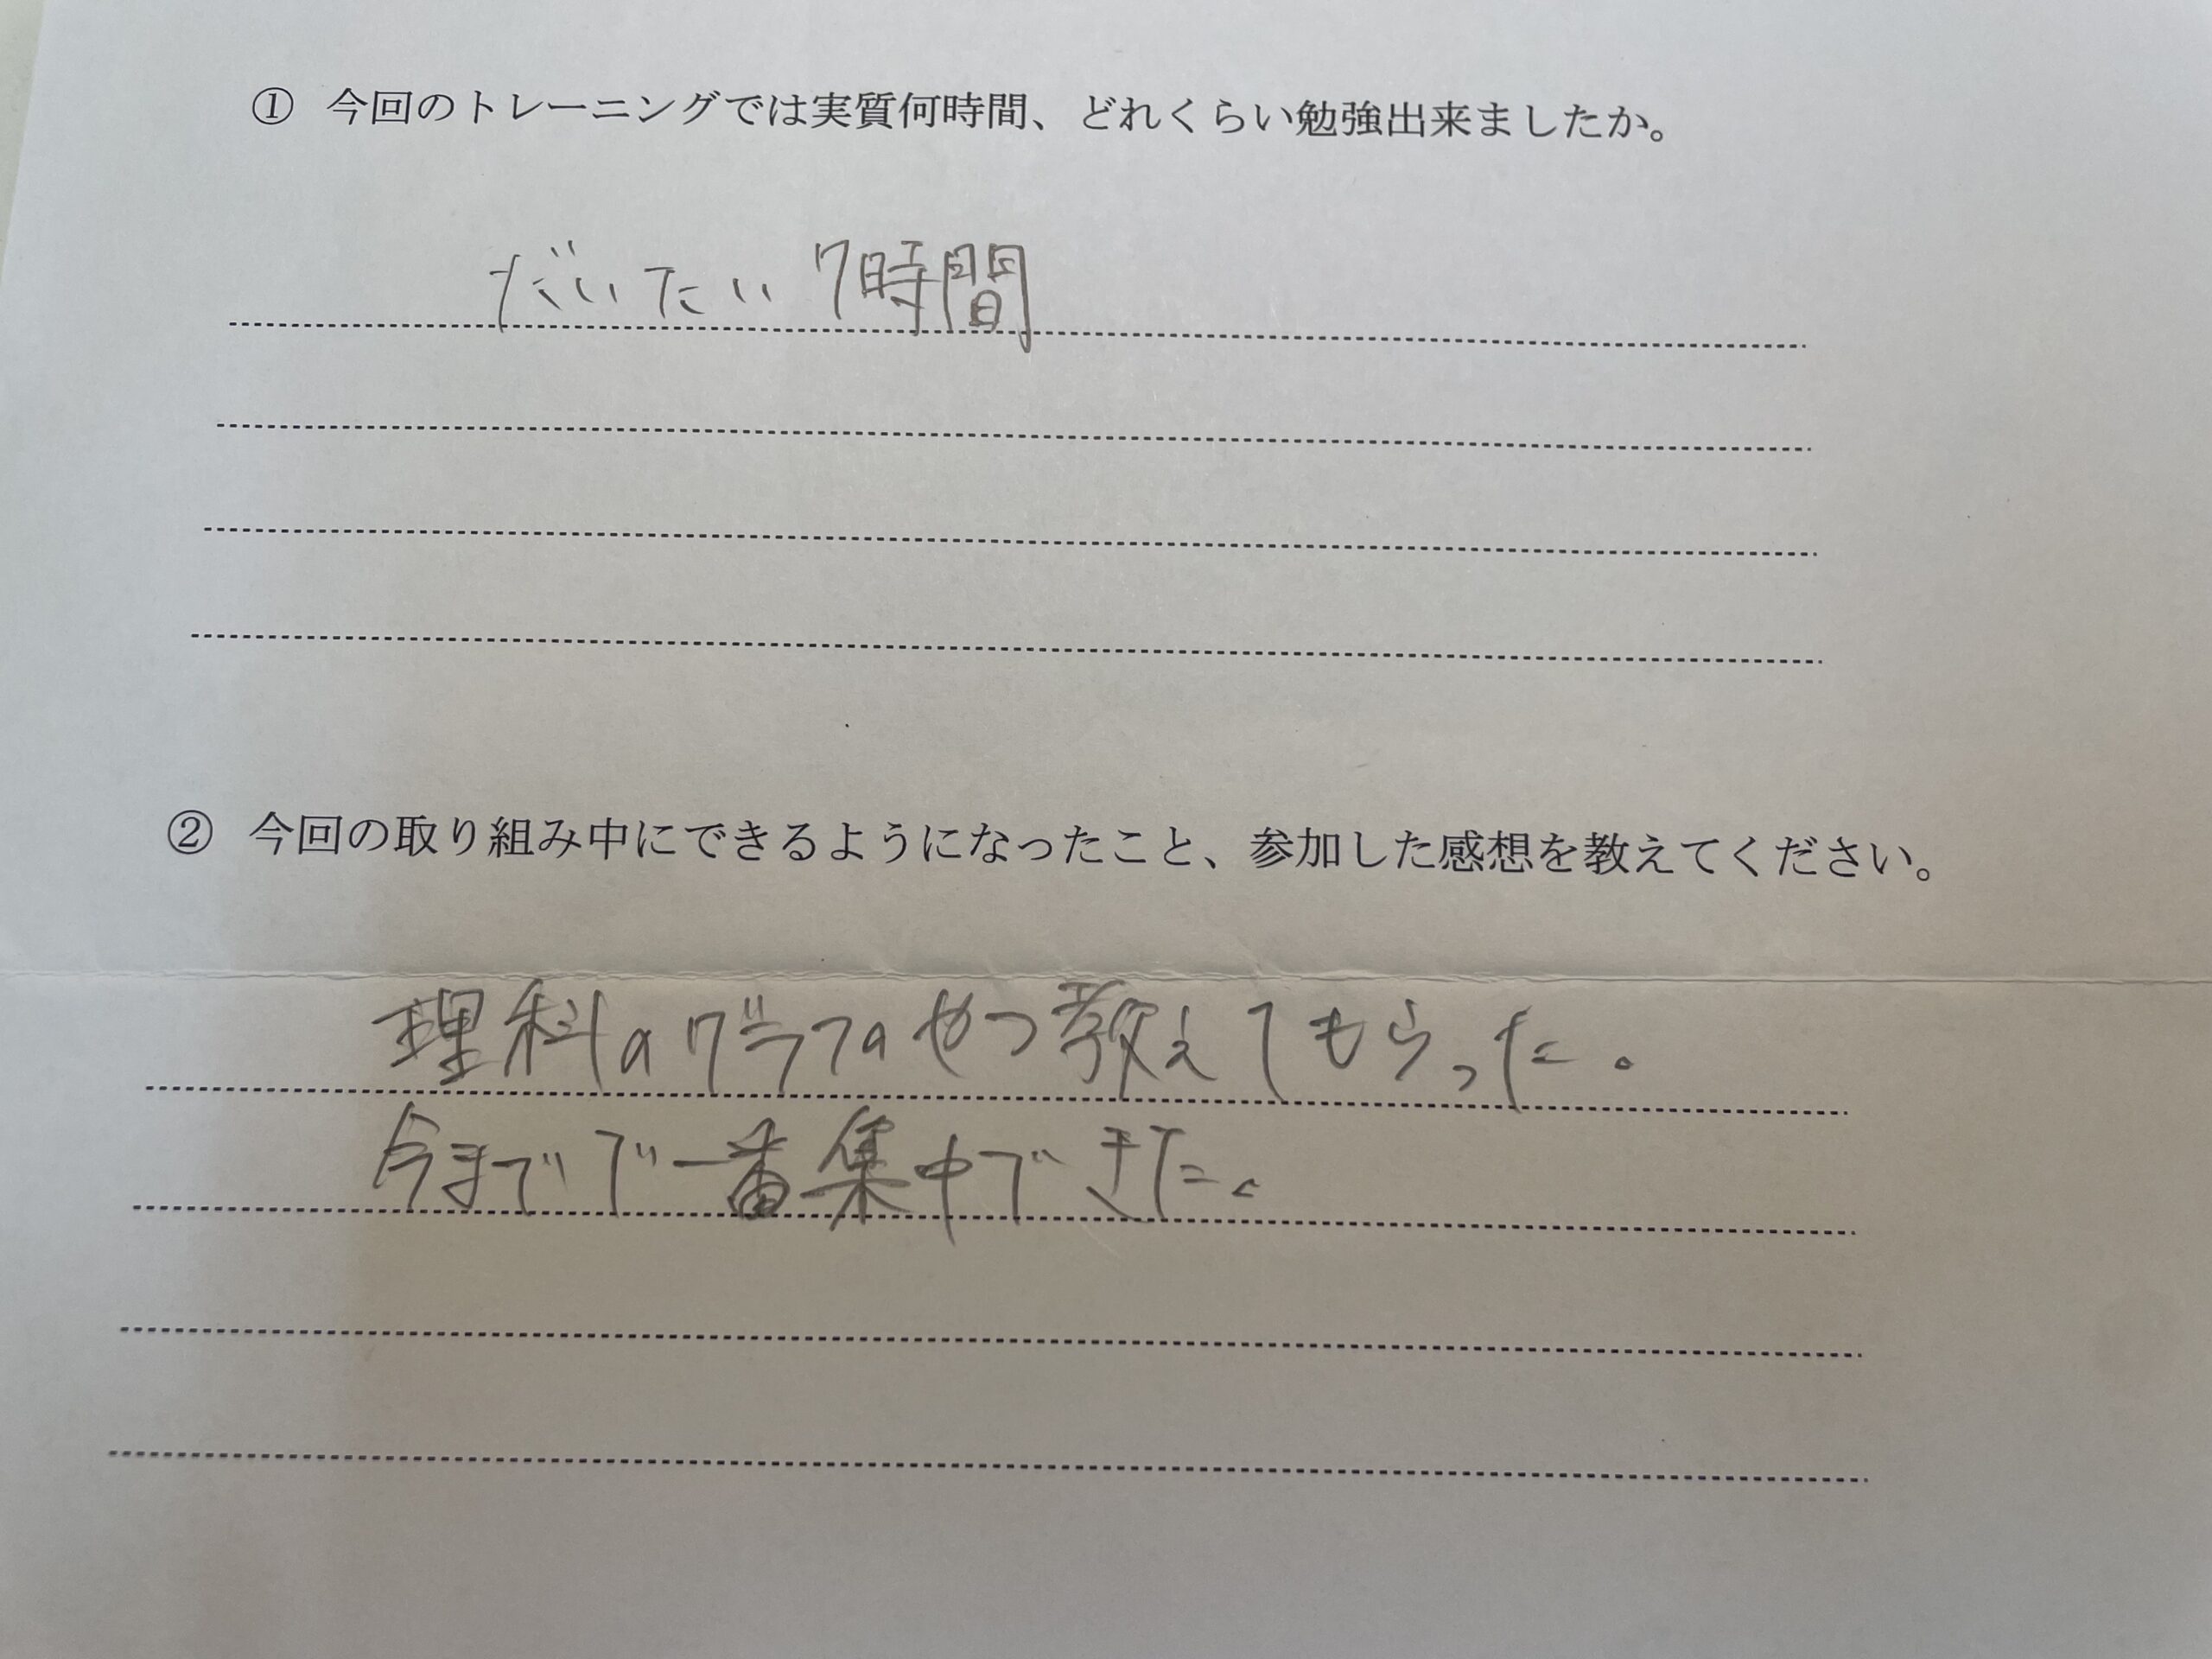 ① 今回のトレーニングでは実質何時間、どれくらい勉強出来ましたか。
だいたい7時間
② 今回の取り組み中にできるようになったこと、参加した感想を教えてください。
理科のグラフのやつ教えてもらった。
今までで一番集中できた。